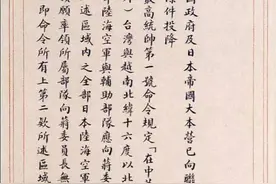 國政府及日本帝國大本營已向聯
條件投降
最高統帥第一號命令規定「在中
)台灣與越南北緯十六度以北
陸海空軍與輔助部隊應向蔣委
述區域內之全部日本陸海空軍
願率領所屬部隊向蔣委員長無
即命令所有上第二款所述區域